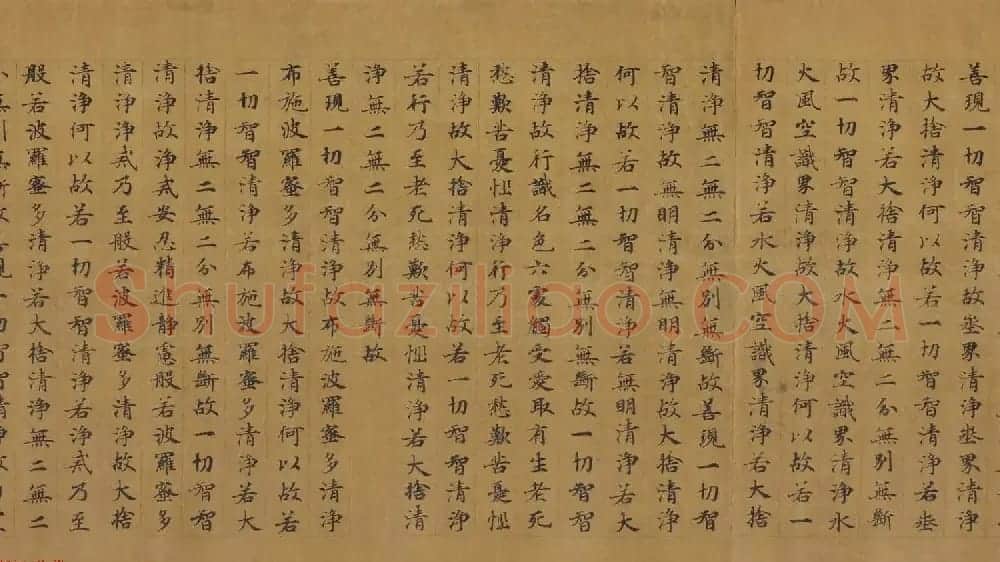 善現一切智智清淨故埊界清淨埊界清淨
故大捨清淨何以故若一切智智清淨若埊
界清淨若大捨清淨無二無二分無別無斷
故一切智智清淨故水火風空識界清淨水
火風空識界清淨故大捨清淨何以故若一
切智智清淨若水火風空識界清淨若大捨
清淨無二無二分無別無斷故善現一切智
智清淨故無明清淨無明清淨故大捨清淨
何以故若一切智智清淨若無明清淨若大
捨清淨無二無二分無別無斷故一切智智
清淨故行識名色六處觸受愛取有生老死
愁歎苦憂惱清淨行乃至老死愁歎苦憂惱
清淨故大捨清淨何以故若一切智智清淨
若行乃至老死愁歎苦憂惱清淨若大捨清
淨無二無二分無別無斷故
善現一切智智清淨故布施波羅蜜多清淨
布施波羅蜜多清淨故大捨清淨何以故若
一切智智清淨若布施波羅蜜多清淨若大
捨清淨無二無二分無別無斷故一切智智
清淨故淨戒安忍精進靜慮般若波羅蜜多
清淨淨戒乃至般若波羅蜜多清淨故大捨
清淨何以故若一切智智清淨若淨戒乃至
般若波羅蜜多清淨若大捨清淨無二無二
Shufaziliao.COM